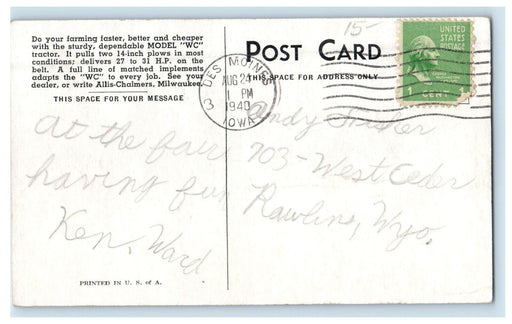 Do your farming faster, better and cheaper
with the sturdy, dependable MODEL "WC"
tractor. It pulls two 14-inch plows in most
conditions; delivers 27 to 31 H.P. on the
belt. A full line of matched implements
adapts the "WC" to every job. See your
dealer, or write Allis-Chalmers, Milwaukee.
THIS SPACE FOR YOUR MESSAGE
At the fair
having fun
Ken, Ward
PRINTED IN U. S. of A.
15-
POST CARD
THIS SPACE FOR ADDRESS ONLY
DES MOINES
AUG 24
1 PM
1940
IOWA
3
UNITED
STATES
POSTAGE
1 CENT
Andy
703-West Ceder
Rawlins, Wyo.